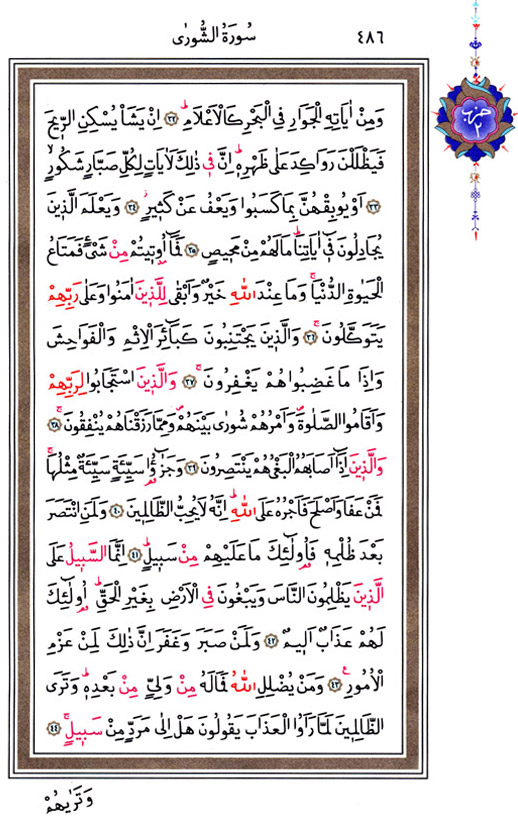 سورة الشورى ٤٨٦
حزب ٢
وَمِنْ اٰيَاتِهِ الْجَوَارِ فِي الْبَحْرِ كَالْاَعْلَامِۜ ٣٢ اِنْ يَشَأْ يُسْكِنِ الرّ۪يحَ
فَيَظْلَلْنَ رَوَاكِدَ عَلٰى ظَهْرِه۪ۜ اِنَّ ف۪ي ذٰلِكَ لَاٰيَاتٍ لِكُلِّ صَبَّارٍ شَكُورٍۙ
٣٣ اَوْ يُوبِقْهُنَّ بِمَا كَسَبُوا وَيَعْفُ عَنْ كَث۪يرٍۘ ٣٤ وَيَعْلَمَ الَّذ۪ينَ
يُجَادِلُونَ ف۪ٓي اٰيَاتِنَاۜ مَا لَهُمْ مِنْ مَح۪يصٍ ٣٥ فَمَٓا اُو۫ت۪يتُمْ مِنْ شَيْءٍ فَمَتَاعُ
الْحَيٰوةِ الدُّنْيَاۚ وَمَا عِنْدَ اللّٰهِ خَيْرٌ وَاَبْقٰى لِلَّذ۪ينَ اٰمَنُوا وَعَلٰى رَبِّهِمْ
يَتَوَكَّلُونَۚ ٣٦ وَالَّذ۪ينَ يَجْتَنِبُونَ كَبَٓائِرَ الْاِثْمِ وَالْفَوَاحِشَ
وَاِذَا مَا غَضِبُوا هُمْ يَغْفِرُونَۚ ٣٧ وَالَّذ۪ينَ اسْتَجَابُوا لِرَبِّهِمْ
وَاَقَامُوا الصَّلٰوةَۖ وَاَمْرُهُمْ شُورٰى بَيْنَهُمْۖ وَمِمَّا رَزَقْنَاهُمْ يُنْفِقُونَۚ ٣٨
وَالَّذ۪ينَ اِذَٓا اَصَابَهُمُ الْبَغْيُ هُمْ يَنْتَصِرُونَ ٣٩ وَجَزٰٓؤُ۬ا سَيِّئَةٍ سَيِّئَةٌ مِثْلُهَاۚ
فَمَنْ عَفَا وَاَصْلَحَ فَاَجْرُهُ عَلَى اللّٰهِۜ اِنَّهُ لَا يُحِبُّ الظَّالِم۪ينَ ٤٠ وَلَمَنِ انْتَصَرَ
بَعْدَ ظُلْمِه۪ فَاُو۬لٰٓئِكَ مَا عَلَيْهِمْ مِنْ سَب۪يلٍۜ ٤١ اِنَّمَا السَّب۪يلُ عَلَى
الَّذ۪ينَ يَظْلِمُونَ النَّاسَ وَيَبْغُونَ فِي الْاَرْضِ بِغَيْرِ الْحَقِّۜ اُو۬لٰٓئِكَ
لَهُمْ عَذَابٌ اَل۪يمٌ ٤٢ وَلَمَنْ صَبَرَ وَغَفَرَ اِنَّ ذٰلِكَ لَمِنْ عَزْمِ
الْاُمُورِ۟ ٤٣ وَمَنْ يُضْلِلِ اللّٰهُ فَمَا لَهُ مِنْ وَلِيٍّ مِنْ بَعْدِه۪ۜ وَتَرَى
الظَّالِم۪ينَ لَمَّا رَاَوُا الْعَذَابَ يَقُولُونَ هَلْ اِلٰى مَرَدٍّ مِنْ سَب۪يلٍۚ ٤٤
وَتَرٰيهُمْ